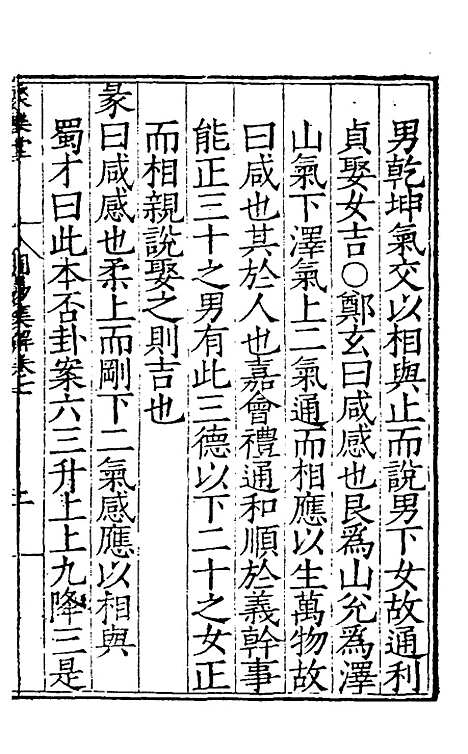 男乾坤氣交以相與止而說男下女故通利
貞娶女吉○鄭玄曰咸感也艮爲山兊爲澤
山氣下澤氣上二氣通而相應以生萬物故
曰咸也其於人也嘉會禮通和順於義幹事
能正三十之男有此三德以下二十之女正
而相親說娶之則吉也
彖曰咸感也柔上而剛下二氣感應以相與
蜀才曰此本否卦案六三升上上九降三是
聚樂堂
周易集解卷七
二